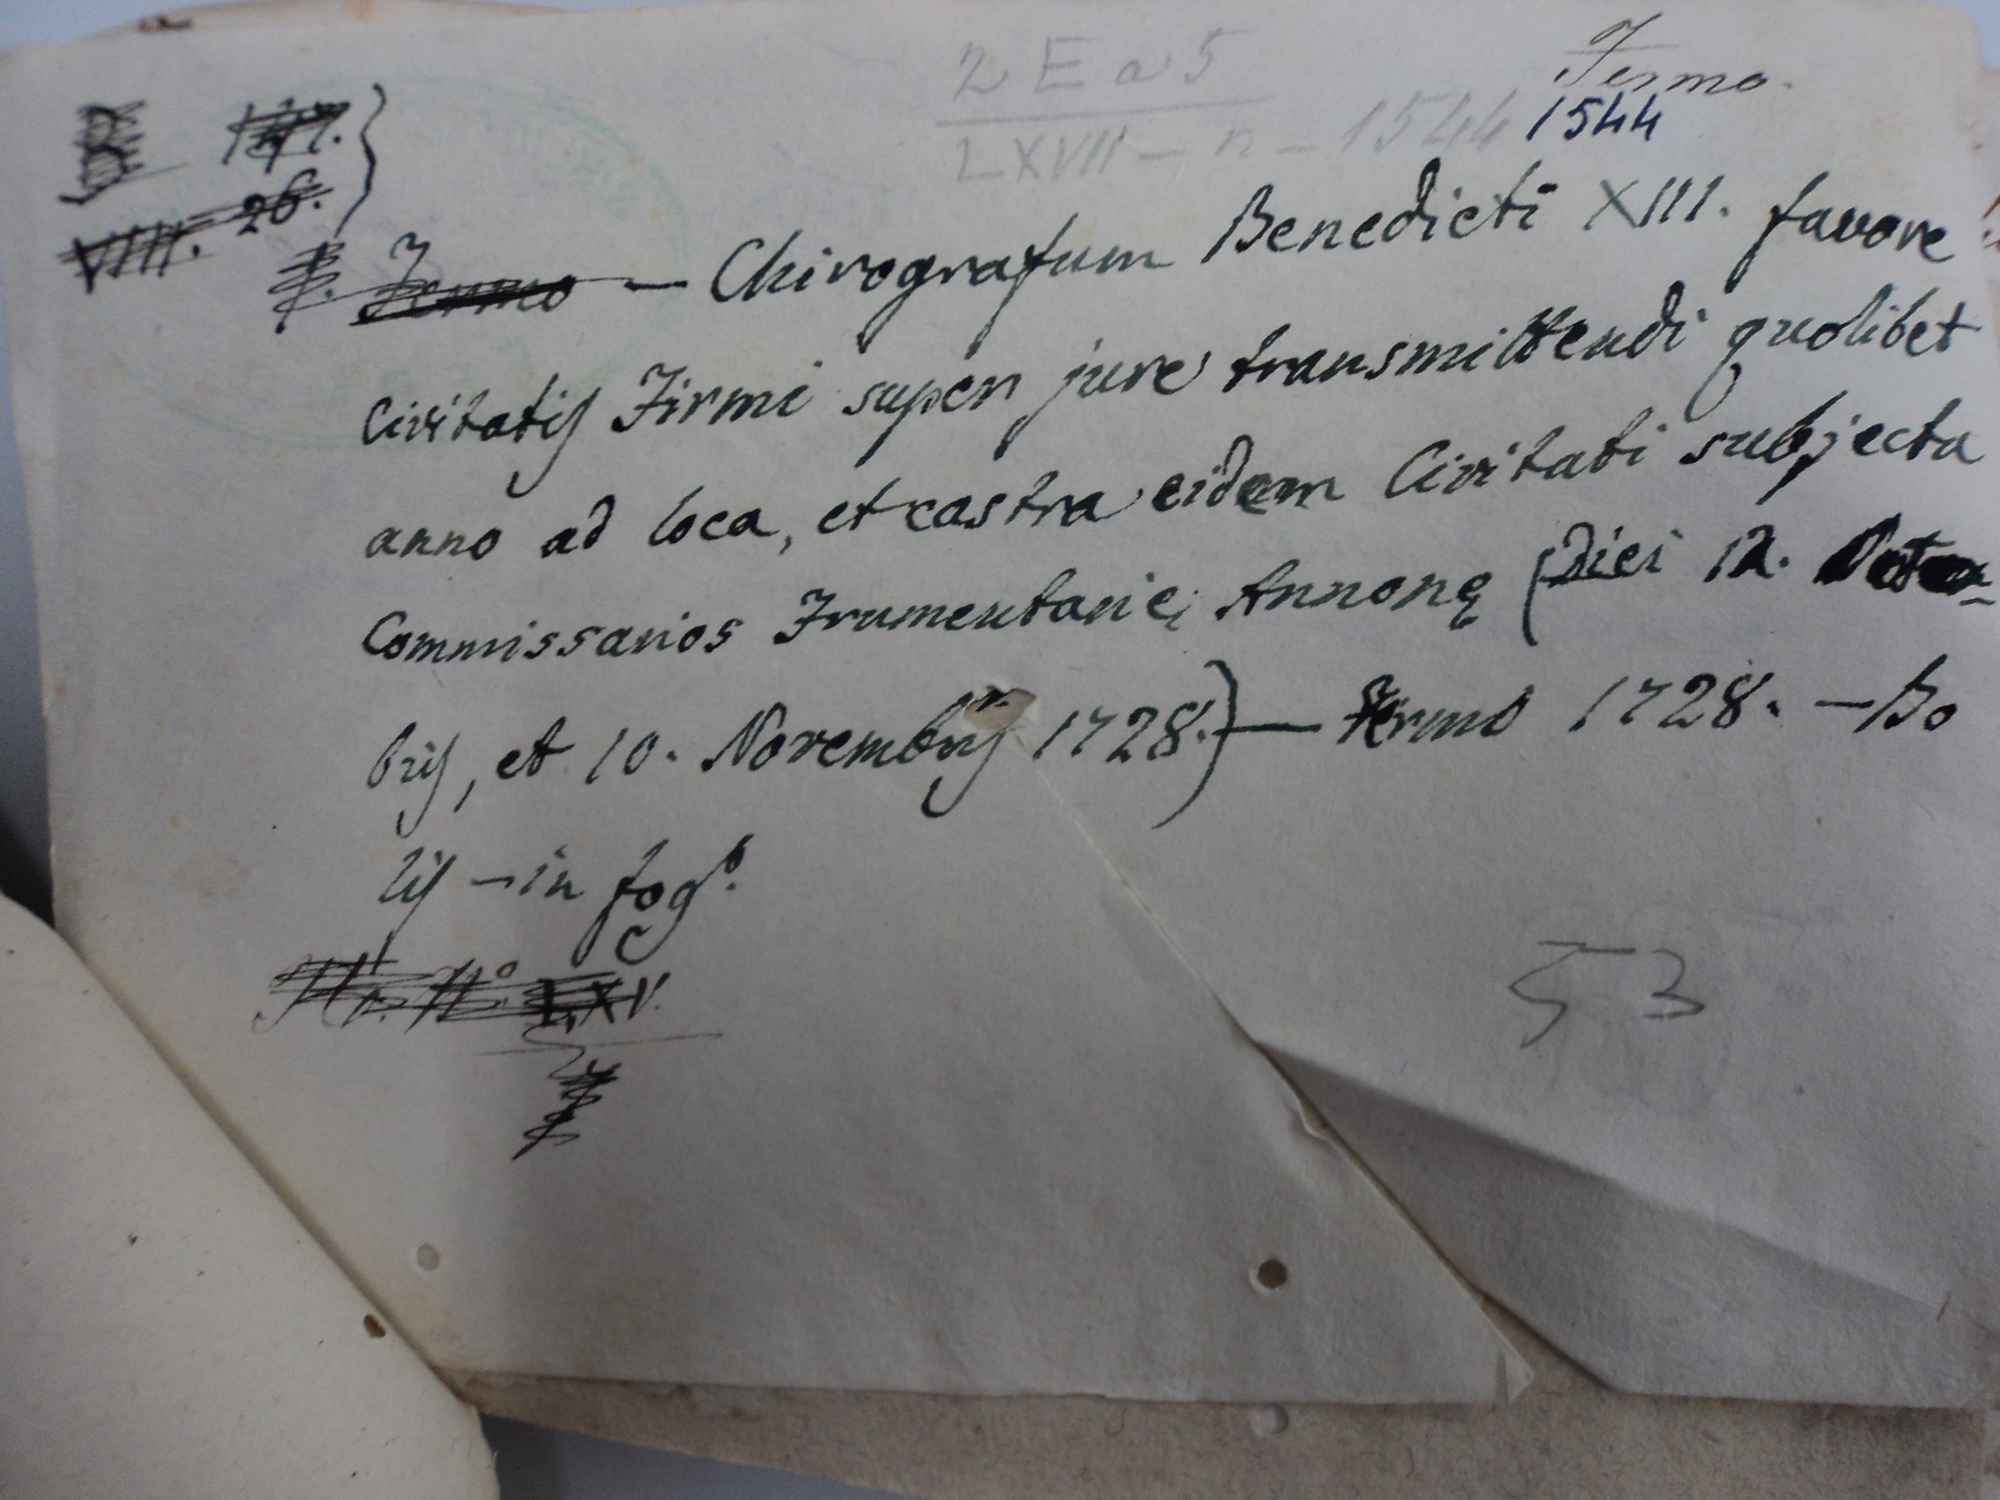 2 E a 5
Fermo.
LXVII - n - 1544 1544
26.
VIIII.
Fermo — Chirografum Benedicti XIII. favore
Civitatis Firmi super jure transmittendi quolibet
anno ad loca, et castra eidem Civitati subjecta
Commissarios Frumentarię Annonę (diei 12. Octo-
bris, et 10. Novembris 1728.) — Fermo 1728. — Bo
lis — in fog.º
N.º LXV.
53